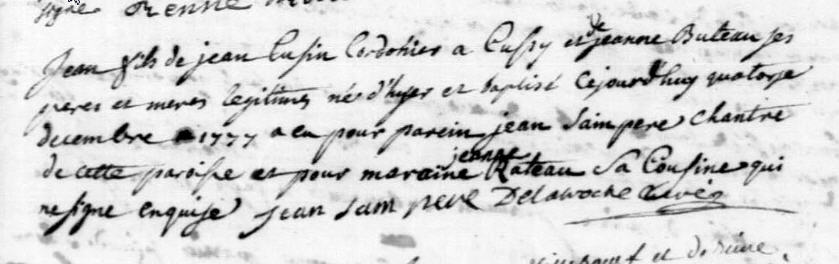 signe
Jean fils de jean Cusin Cordonier a Cussy et de jeanne Buteau ses
peres et meres legitimes né d'hyer et baptisé cejourd'huy quatorze
decembre 1777 a eu pour parein jean Sampere chantre
de cette paroisse et pour maraine jeanne Rateau Sa Cousine qui
ne signe enquise jean sam pere Delaroche Curé
et de